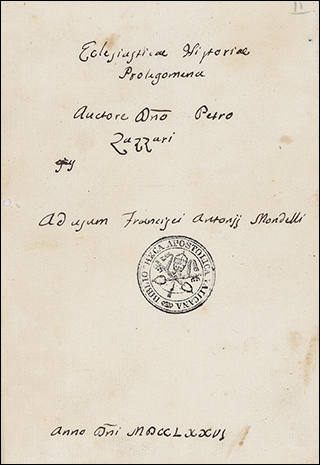 11
Eclesiasticæ Historiæ
Prolegomena
Auctore Dno Petro
Lazzari
Ad usum Francisci Antonij Mondelli
BIBLIOTHECA APOSTOLICA VATICANA
Anno Dni MDCCLXXVI